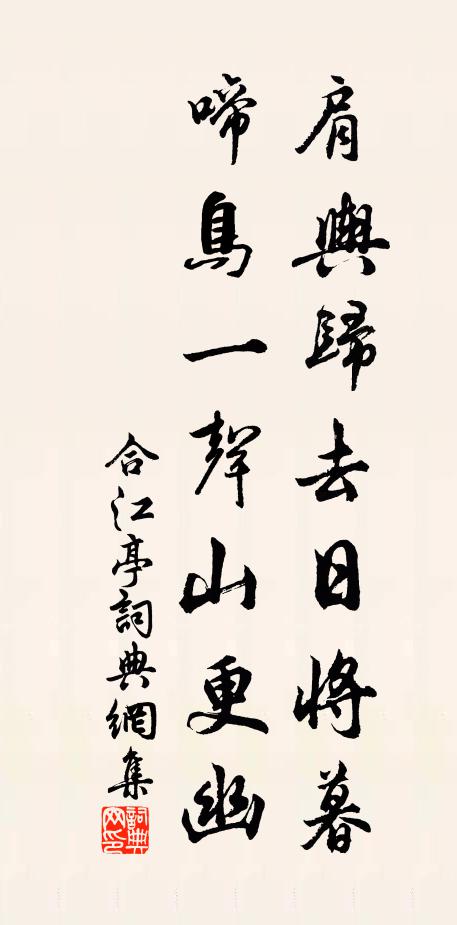 肩輿歸去日將暮
啼鳥一聲山更幽
合江亭詞典網集
詞典網印